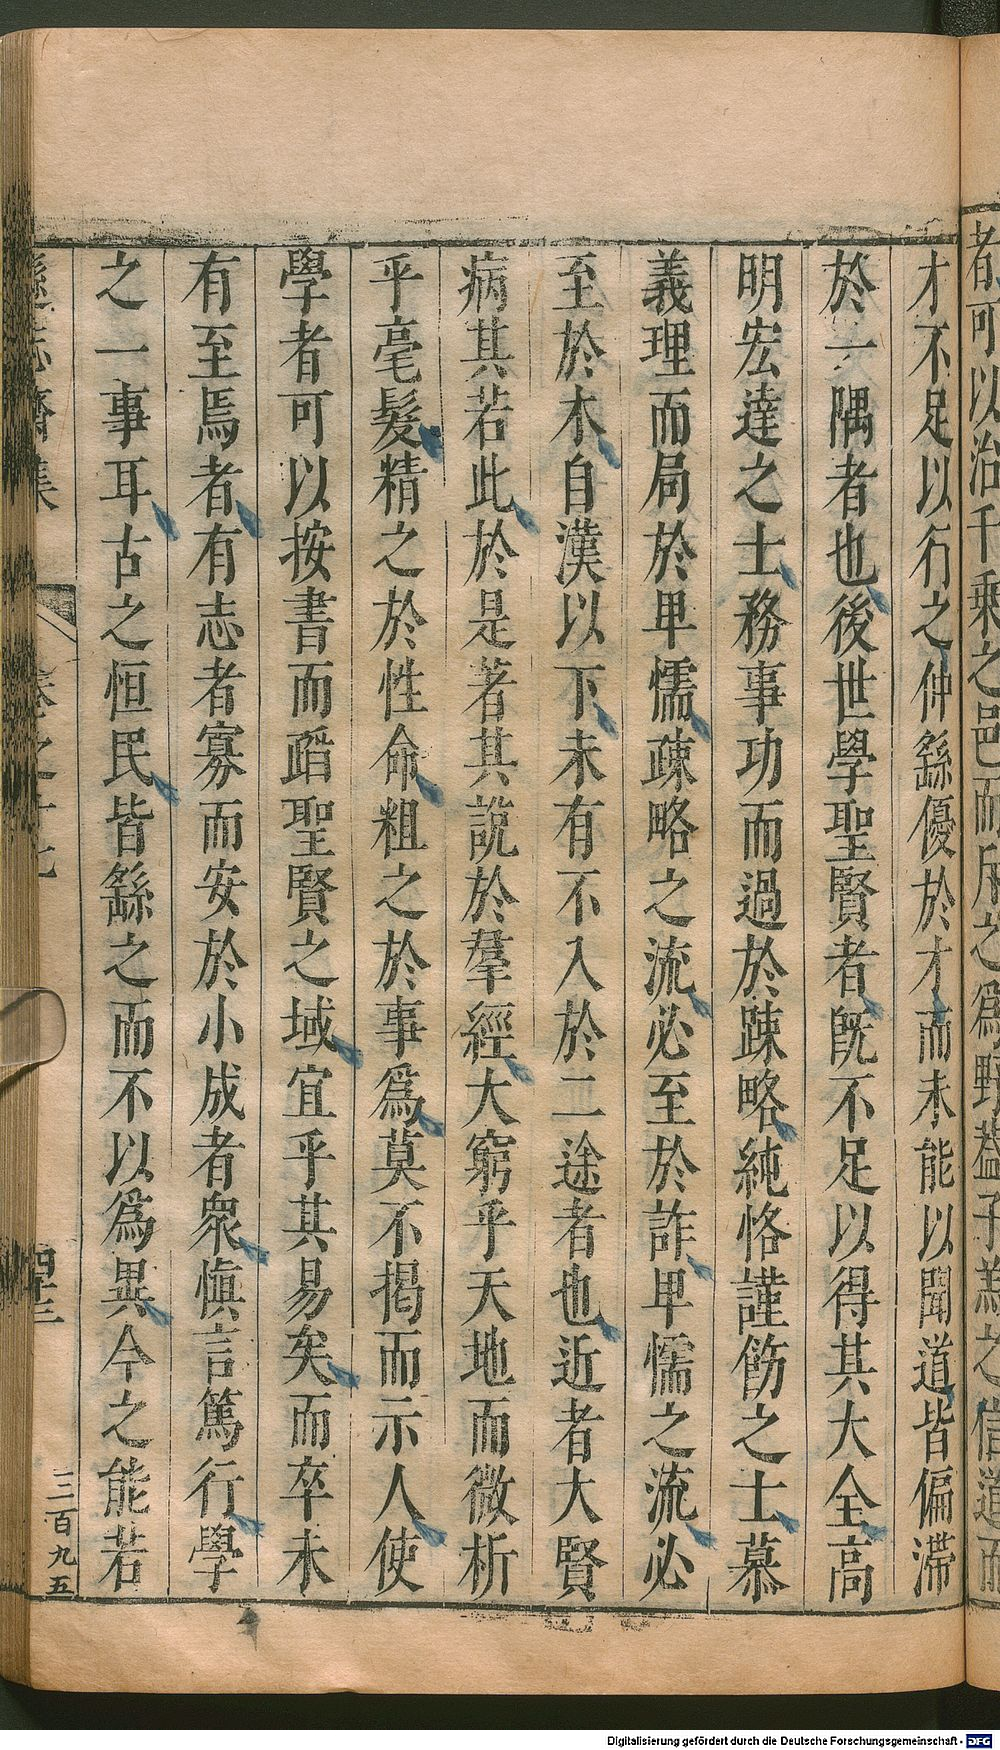 者可以治千乘之邑而斥之爲野蓋子羔之信道而
才不足以行之仲繇優於才而未能以聞道皆偏滯
於一隅者也後世學聖賢者旣不足以得其大全高
明宏達之士務事功而過於踈略純恪謹飭之士慕
義理而局於卑懦疎略之流必至於詐卑懦之流必
至於木自漢以下未有不入於二途者也近者大賢
病其若此於是著其說於羣經大窮乎天地而微析
乎毫髮精之於性命粗之於事爲莫不揭而示人使
學者可以按書而踏聖賢之域宜乎其易矣而卒未
有至焉者有志者寡而安於小成者衆愼言篤行學
之一事耳古之恒民皆繇之而不以爲異今之能若
遜志齋集 卷之十七 四十三 三百九五
Digitalisierung gefördert durch die Deutsche Forschungsgemeinschaft - DFG